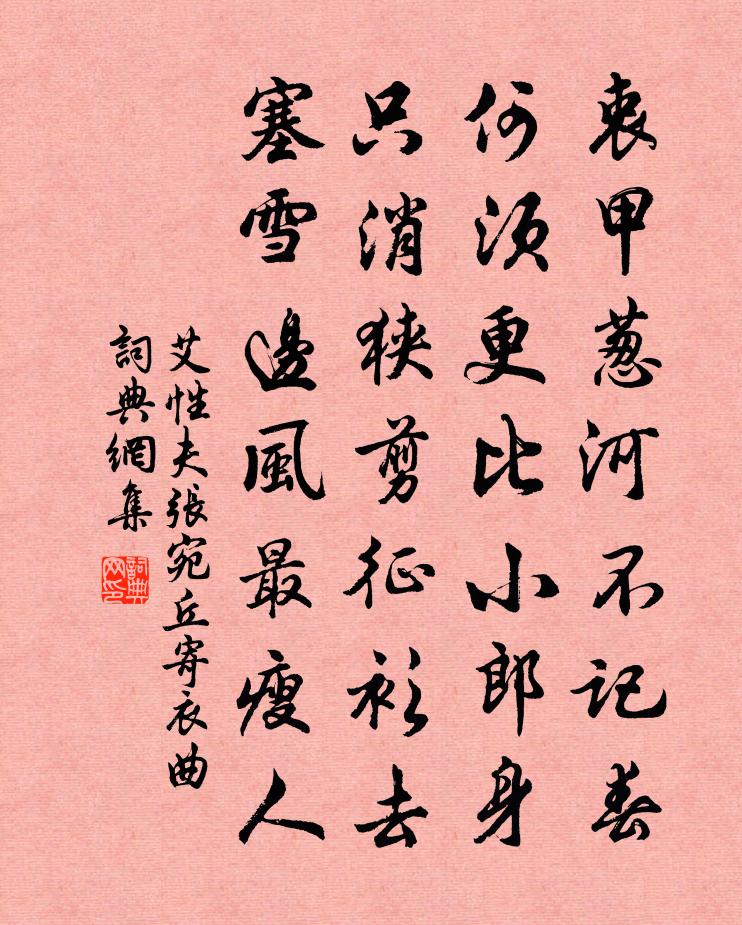 衷甲葱河不记春
何须更比小郎身
只消狭剪征衫去
塞雪邊風最瘦人
艾性夫張宛丘寄衣曲
詞典網集
詞典
网印